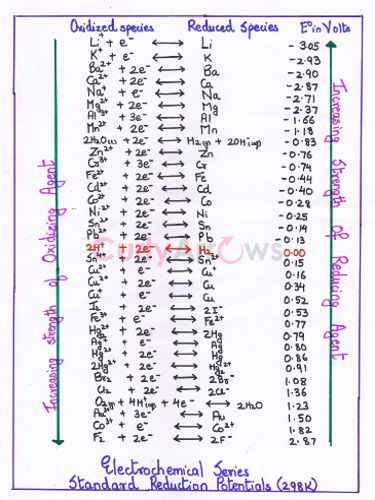 Oxidized species Reduced Species E° in Volts
Li⁺ + e⁻ ⟷ Li - 3.05
K⁺ + e⁻ ⟷ K - 2.93
Ba²⁺ + 2e⁻ ⟷ Ba - 2.90
Ca²⁺ + 2e⁻ ⟷ Ca - 2.87
Na⁺ + e⁻ ⟷ Na - 2.71
Mg²⁺ + 2e⁻ ⟷ Mg - 2.37
Al³⁺ + 3e⁻ ⟷ Al - 1.66
Mn²⁺ + 2e⁻ ⟷ Mn - 1.18
2H₂O(l) + 2e⁻ ⟷ H₂(g) + 2OH⁻(aq) - 0.83
Zn²⁺ + 2e⁻ ⟷ Zn - 0.76
Cr³⁺ + 3e⁻ ⟷ Cr - 0.74
Fe²⁺ + 2e⁻ ⟷ Fe - 0.44
Cd²⁺ + 2e⁻ ⟷ Cd - 0.40
Co²⁺ + 2e⁻ ⟷ Co - 0.28
Ni²⁺ + 2e⁻ ⟷ Ni - 0.25
Sn²⁺ + 2e⁻ ⟷ Sn - 0.14
Pb²⁺ + 2e⁻ ⟷ Pb - 0.13
2H⁺ + 2e⁻ ⟷ H₂ 0.00
Sn⁴⁺ + 2e⁻ ⟷ 0.15
Cu²⁺ + e⁻ ⟷ Cu⁺ 0.16
Cu²⁺ + 2e⁻ ⟷ Cu 0.34
Cu⁺ + e⁻ ⟷ Cu 0.52
I₂ + 2e⁻ ⟷ 2I⁻ 0.53
Fe³⁺ + e⁻ ⟷ Fe²⁺ 0.77
Hg₂²⁺ + 2e⁻ ⟷ 2Hg 0.79
Ag⁺ + e⁻ ⟷ Ag 0.80
Hg²⁺ + 2e⁻ ⟷ Hg 0.86
2Hg²⁺ + 2e⁻ ⟷ Hg₂²⁺ 0.91
Br₂ + 2e⁻ ⟷ 2Br⁻ 1.08
Cl₂ + 2e⁻ ⟷ 2Cl⁻ 1.36
O₂(g) + 4H⁺(aq) + 4e⁻ ⟷ 2H₂O 1.23
Au³⁺ + 3e⁻ ⟷ Au 1.50
Co³⁺ + e⁻ ⟷ Co²⁺ 1.82
F₂ + 2e⁻ ⟷ 2F⁻ 2.87
Increasing strength of Oxidizing Agent
Increasing Strength of Reducing Agent
CurlyArrows
Electrochemical Series
Standard Reduction Potentials (298K)